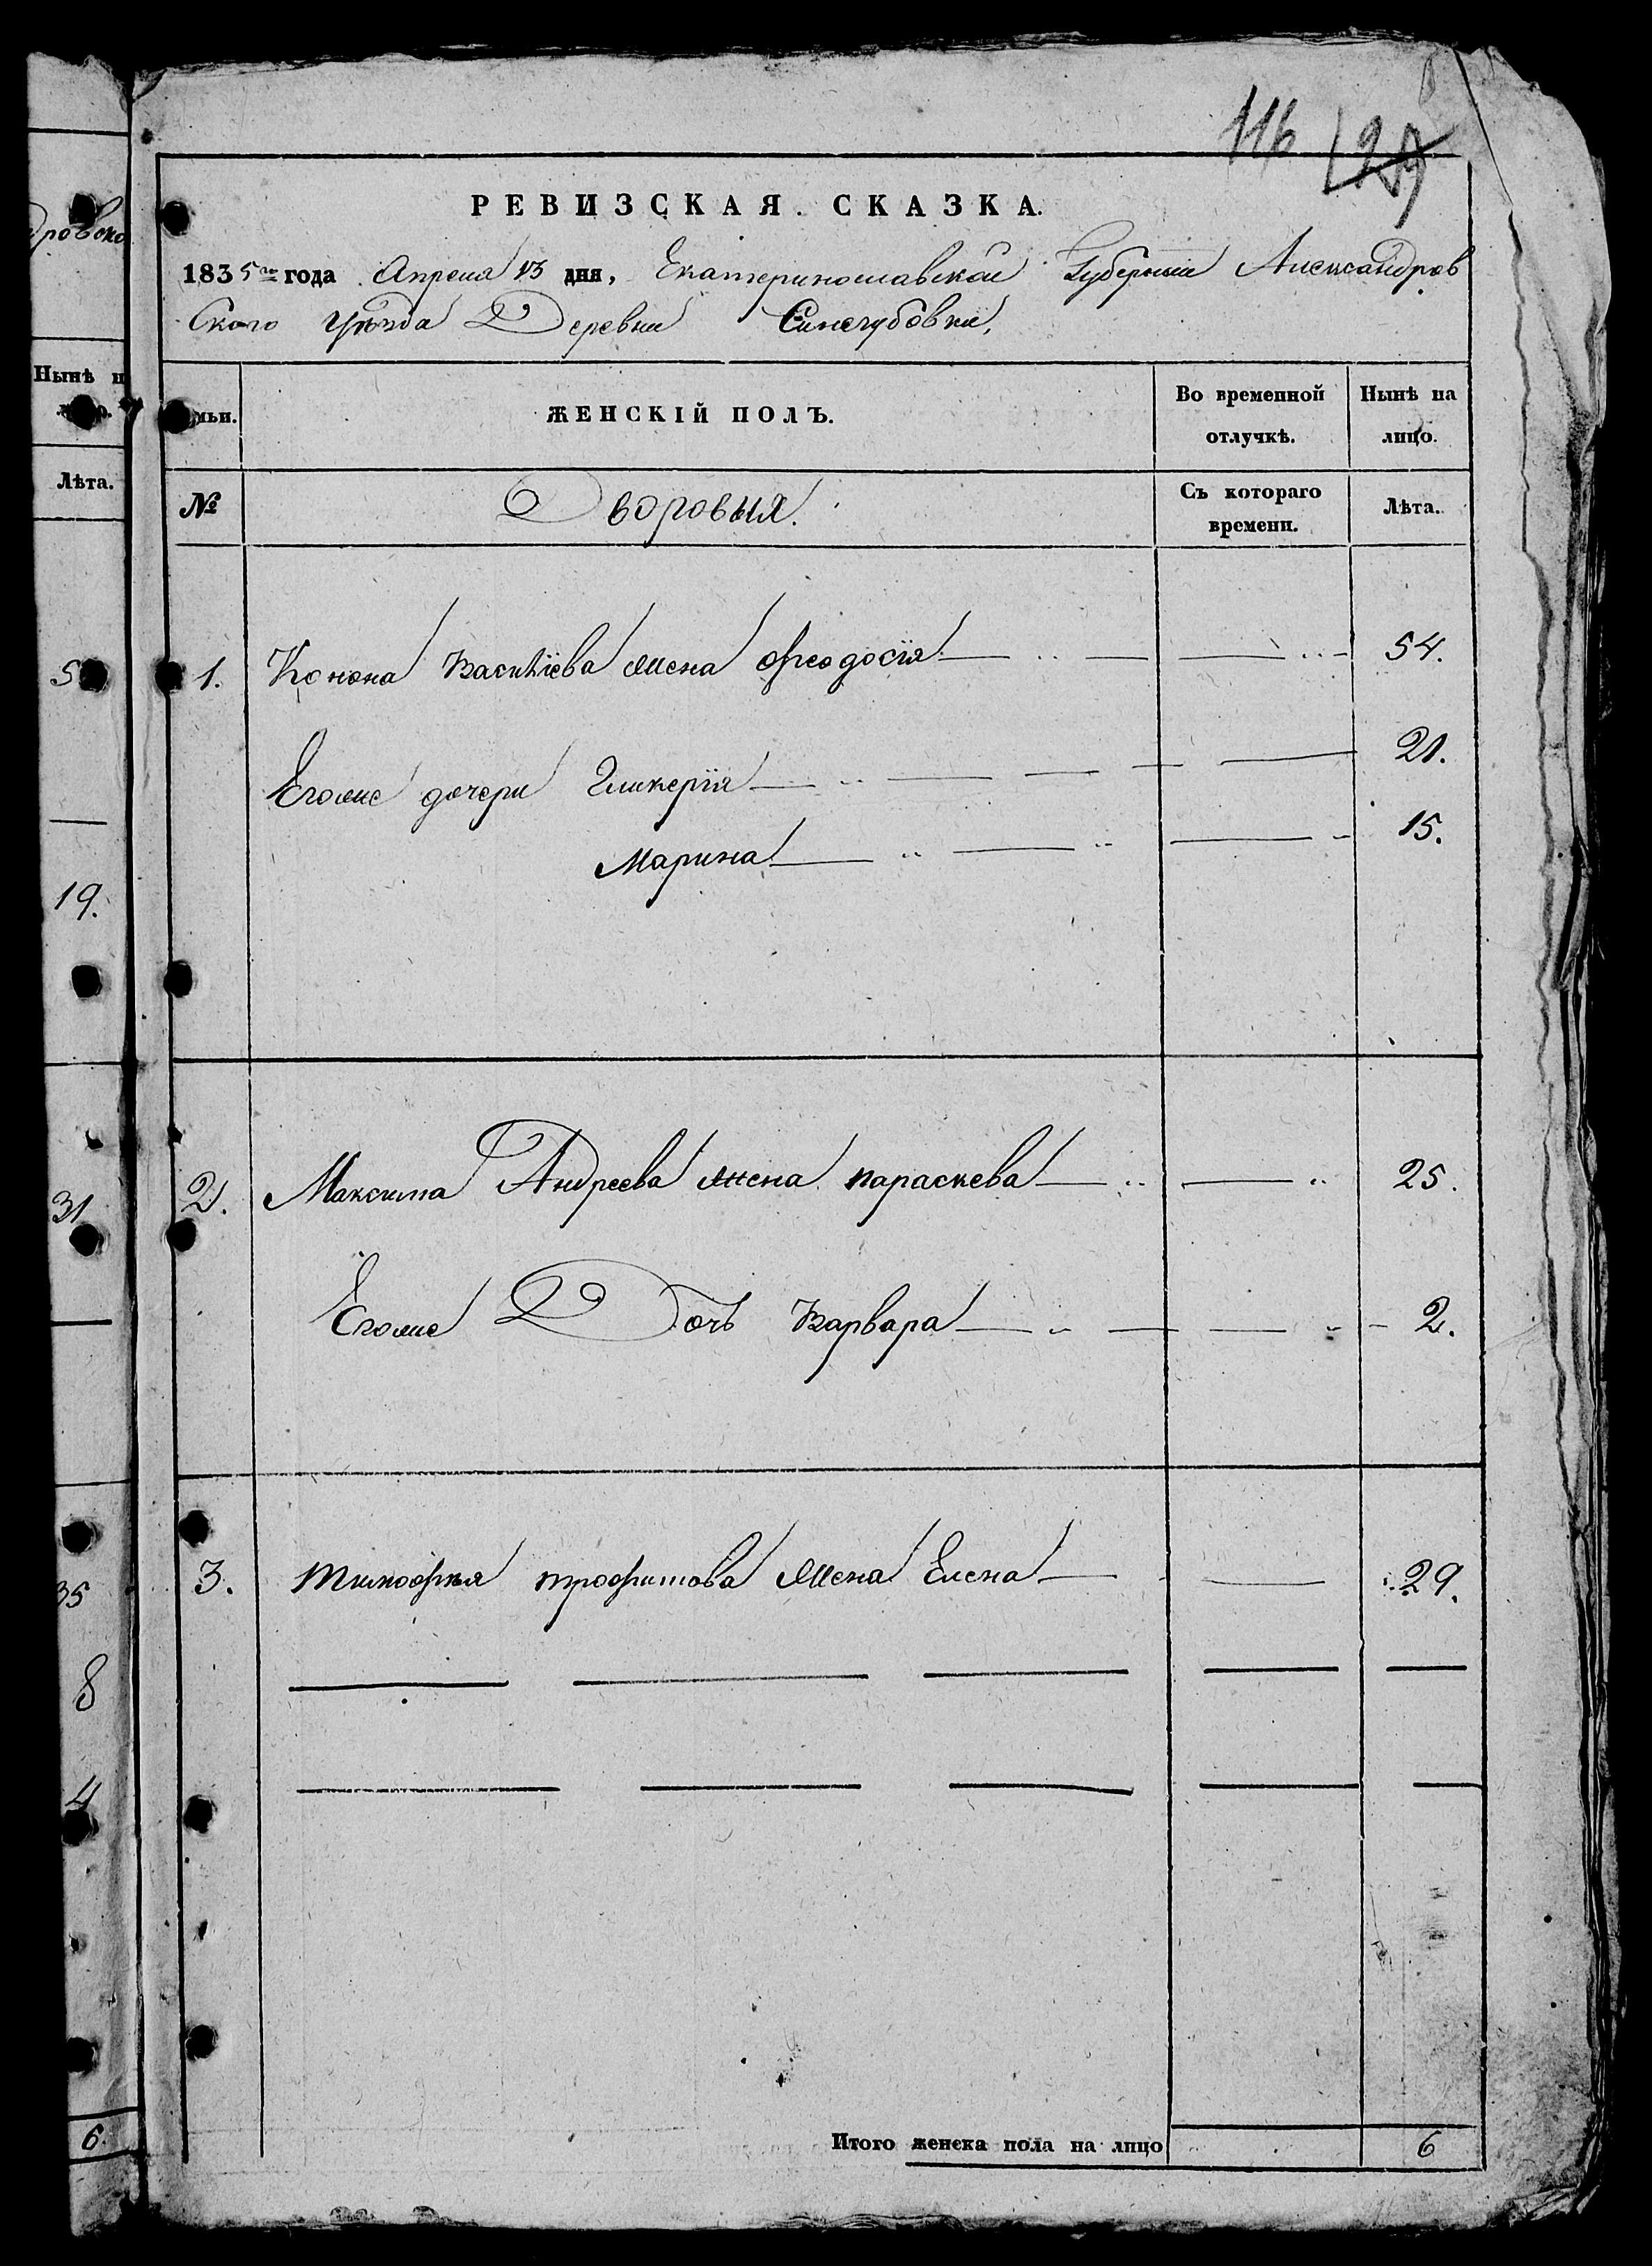 116 127
дровско
РЕВИЗСКАЯ СКАЗКА.
1835го года Апреля 13 дня, Екатеринославской Губернии Александров
ского Уѣзда Деревни Синегубовки,
Нынѣ н
мьи.
ЖЕНСКІЙ ПОЛЪ.
Во временной отлучкѣ.
Нынѣ на лицо.
Лѣта.
№
Дворовыя.
Съ котораго времени.
Лѣта.
5
1. Конона Василіева жена Феодосія 54.
Его же дочери Гликерія 21.
Марина 15.
19.
31
2. Максима Андреева жена параскева 25.
Его же Дочь Варвара 2.
35
3. тимофея трофимова жена Елена 29.
8
4
6.
Итого женска пола на лицо 6